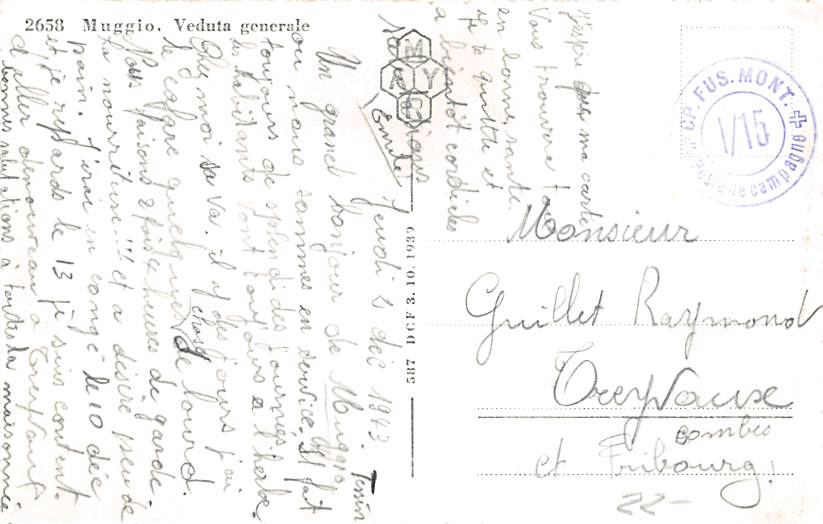 2658 Muggio. Veduta generale
Jeudi 2 déc 1943. Tessin
Un grand bonjour de Muggio
ou nous sommes en service. Il fait
toujours de splendides journées
les habitants vont toujours a l'herbe.
Chez moi sa va. il y des jours j'ai
le cafard quelques chose de lourd.
Nous faisons 2 fois 2 heures de garde
la nourriture!!! et a désiré peu de
pain. J'irai en congé le 10 déc
et je repards le 13 je suis content.
d'aller de nouveau a Treyvaux
bonnes salutations à toutes la maisonnée
J'espère que ma carte
Vous trouvera
en bonne santé
Je te quitte et
a bientôt cordiales
Emile
MY
587 DCF 3.10.1939
CP. FUS. MONT. I/15
Poste de campagne
Monsieur
Guillet Raymond
Treyvaux
combes
ct Fribourg.
22-